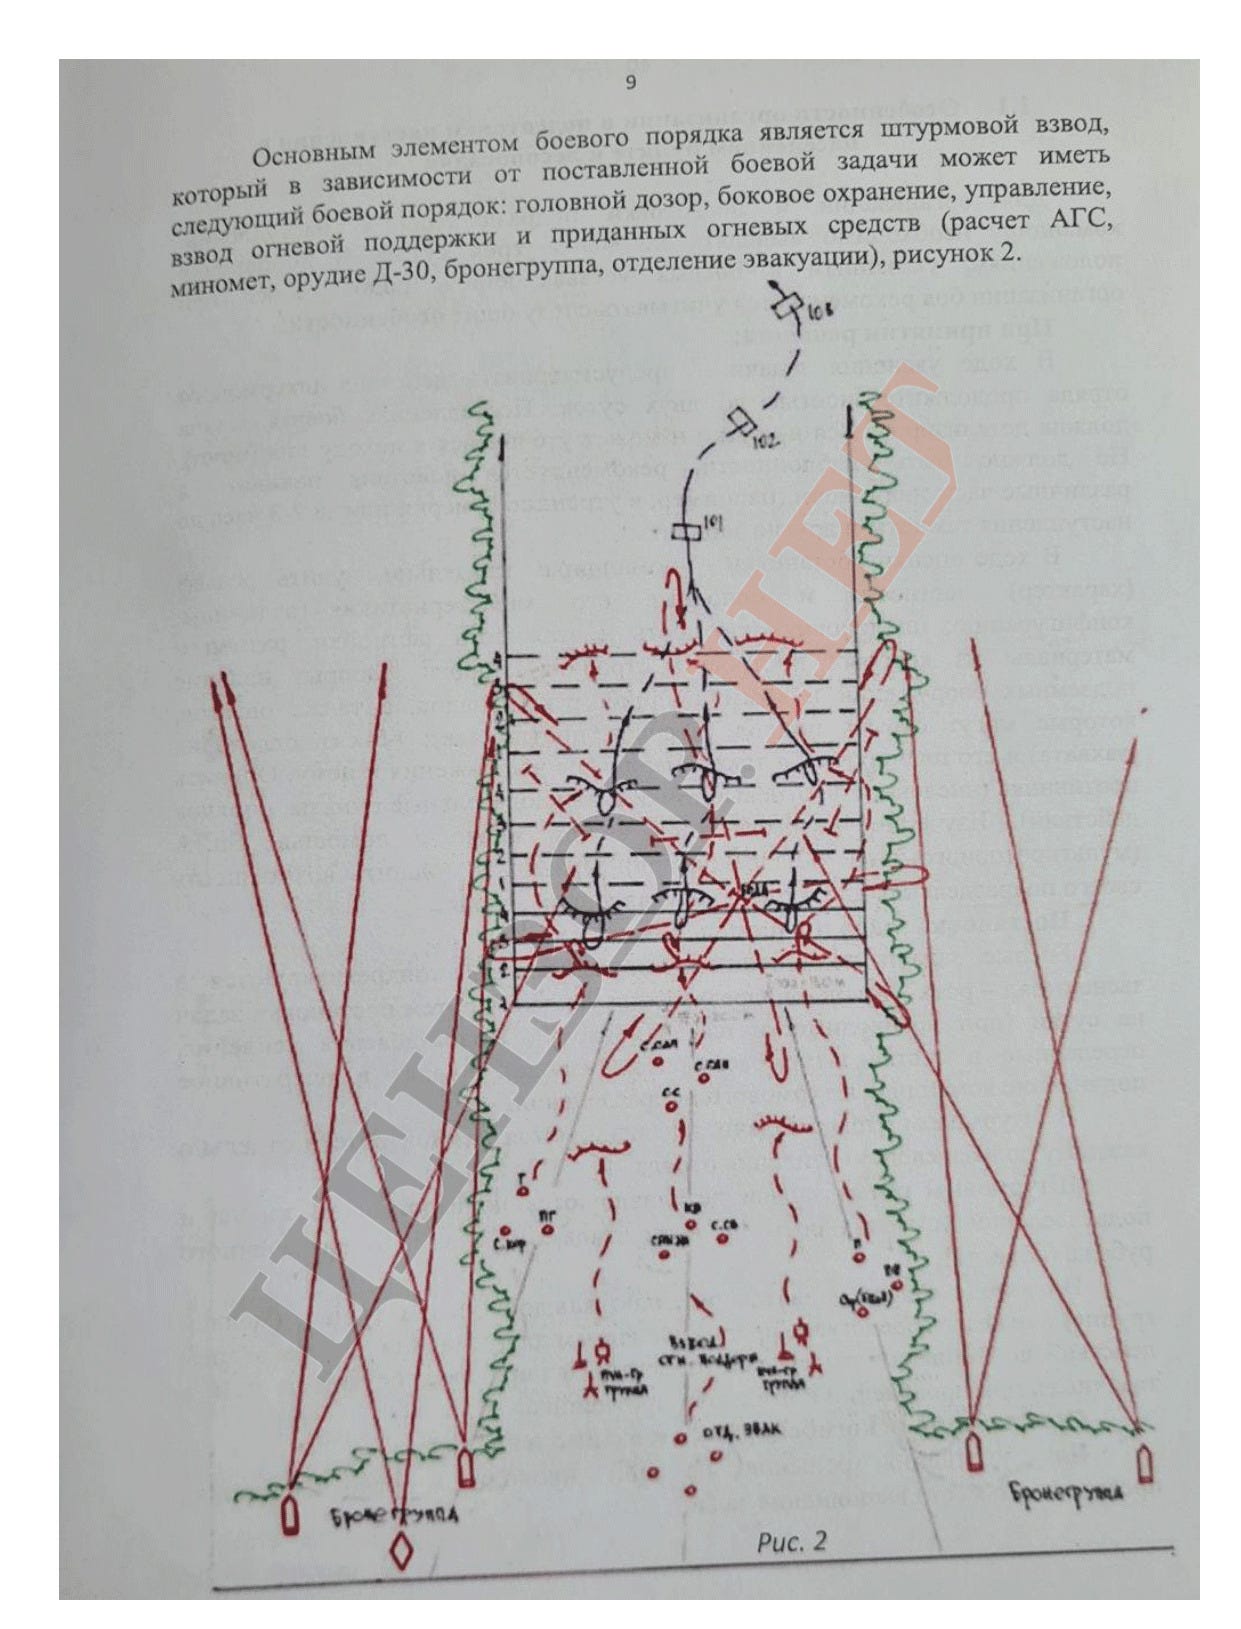 9
Основным элементом боевого порядка является штурмовой взвод,
который в зависимости от поставленной боевой задачи может иметь
следующий боевой порядок: головной дозор, боковое охранение, управление,
взвод огневой поддержки и приданных огневых средств (расчет АГС,
миномет, орудие Д-30, бронегруппа, отделение эвакуации), рисунок 2.
103
102
101
4
3
2
1
4
3
2
1
4
3
2
1
ЦЕНЗОР.НЕТ
С.САП
С.САП
СС
Т
ПГ
КВ
С.СВ
П
ВЗВОД
ОГН. ПОДДЕРЖ
ПУЛ-ГР
ГРУППА
ПУЛ-ГР
ГРУППА
ОТД. ЭВАК
Бронегруппа
Бронегруппа
Рис. 2